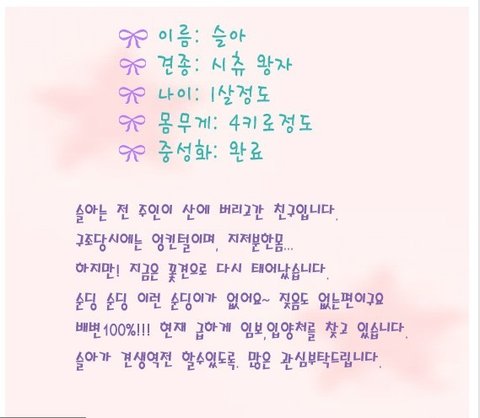 이름: 슬아
견종: 시츄 왕자
나이: 1살정도
몸무게: 4키로정도
중성화: 완료
슬아는 전 주인이 산에 버리고간 친구입니다.
구조당시에는 엉킨털이며, 지저분한몸...
하지만! 지금은 꽃견으로 다시 태어났습니다.
순딩 순딩 이런 순딩이가 없어요~ 짖음도 없는편이구요
배변100%!!! 현재 급하게 임보,입양처를 찾고 있습니다.
슬아가 견생역전 할수있도록. 많은 관심부탁드립니다.